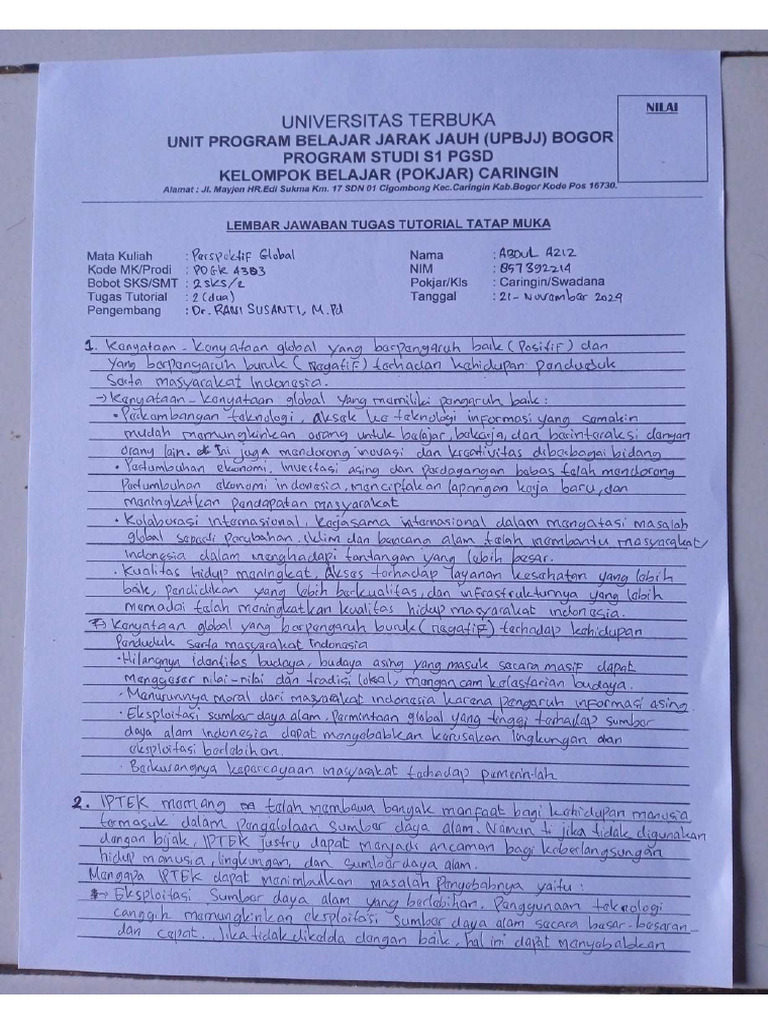 NILAI
UNIVERSITAS TERBUKA
UNIT PROGRAM BELAJAR JARAK JAUH (UPBJJ) BOGOR
PROGRAM STUDI S1 PGSD
KELOMPOK BELAJAR (POKJAR) CARINGIN
Alamat : Jl. Mayjen HR.Edi Sukma Km. 17 SDN 01 Cigombong Kec.Caringin Kab.Bogor Kode Pos 16730.
LEMBAR JAWABAN TUGAS TUTORIAL TATAP MUKA
Mata Kuliah : Perspektif Global Nama : ABDUL AZIZ
Kode MK/Prodi : PDGK 4303 NIM : 857392214
Bobot SKS/SMT : 2 SKS/2 Pokjar/Kls : Caringin/Swadana
Tugas Tutorial : 2 (dua) Tanggal : 21-November 2024
Pengembang : Dr. RANI SUSANTI, M.Pd
1. Kenyataan-kenyataan global yang berpengaruh baik (Positif) dan
yang berpengaruh buruk (negatif) terhadap kehidupan penduduk
Serta masyarakat Indonesia.
→ Kenyataan-kenyataan global yang memiliki pengaruh baik :
• Perkembangan teknologi, Akses ke teknologi informasi yang semakin
mudah memungkinkan orang untuk belajar, bekerja, dan berinteraksi dengan
orang lain. Ini juga mendorong inovasi dan kreativitas diberbagai bidang
• Pertumbuhan ekonomi, Investasi asing dan perdagangan bebas telah mendorong
Pertumbuhan ekonomi indonesia, menciptakan lapangan kerja baru, dan
meningkatkan pendapatan masyarakat
• Kolaborasi internasional, kerjasama internasional dalam mengatasi masalah
global seperti perubahan iklim dan bencana alam telah membantu masyarakat
Indonesia dalam menghadapi tantangan yang lebih besar.
• Kualitas hidup meningkat, Akses terhadap layanan kesehatan yang lebih
baik, pendidikan yang lebih berkualitas, dan infrastrukturnya yang lebih
memadai telah meningkatkan kualitas hidup masyarakat indonesia.
→ Kenyataan global yang berpengaruh buruk (negatif) terhadap kehidupan
Penduduk serta masyarakat Indonesia
• Hilangnya identitas budaya, budaya asing yang masuk secara masif dapat
menggeser nilai-nilai dan tradisi lokal, mengancam kelestarian budaya.
• Menurunnya moral dari masyarakat indonesia karena pengaruh informasi asing.
• Eksploitasi sumber daya alam, Permintaan global yang tinggi terhadap sumber
daya alam Indonesia dapat menyebabkan kerusakan lingkungan dan
eksploitasi berlebihan.
• Berkurangnya kepercayaan masyarakat terhadap pemerintah
2. IPTEK memang telah membawa banyak manfaat bagi kehidupan manusia,
termasuk dalam pengelolaan sumber daya alam. Namun jika tidak digunakan
dengan bijak, IPTEK justru dapat menjadi ancaman bagi keberlangsungan
hidup manusia, lingkungan, dan sumber daya alam.
Mengapa IPTEK dapat menimbulkan masalah Penyebabnya yaitu :
→ Eksploitasi Sumber daya alam yang berlebihan. Penggunaan teknologi
canggih memungkinkan eksploitasi sumber daya alam secara besar-besaran
dan cepat. Jika tidak dikelola dengan baik, hal ini dapat menyebabkan